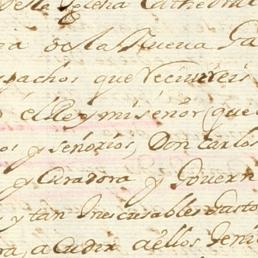 de la Iglesia Cathedral
ra de la Nueva Ga
pachos que reciviereis
el Rey mi señor (que
os y señorios, Don Carlos
y Curadora y Govern
s y tan Inescusables Gasto
ra, acudir a ellos